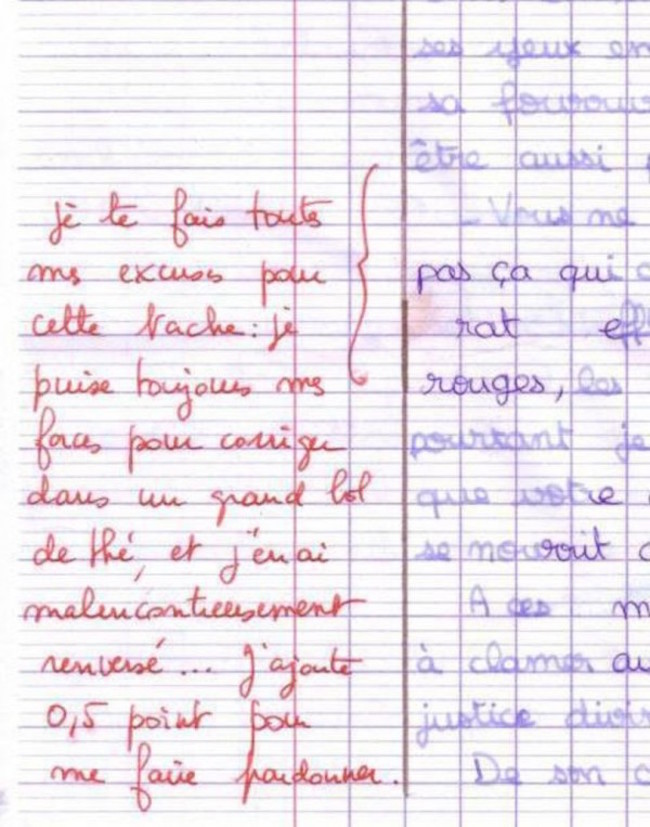 je te fais toutes
mes excuses pour
cette tache : je
puise toujours mes
forces pour corriger
dans un grand bol
de thé, et j'en ai
malencontreusement
renversé... J'ajoute
0,5 point pour
me faire pardonner.
ses yeux en
sa
être aussi
- Vous ne
pas ça qui
rat
rouges, les
pourtant je
que votre
se nourrit
A ces
à clamer au
justice
De son